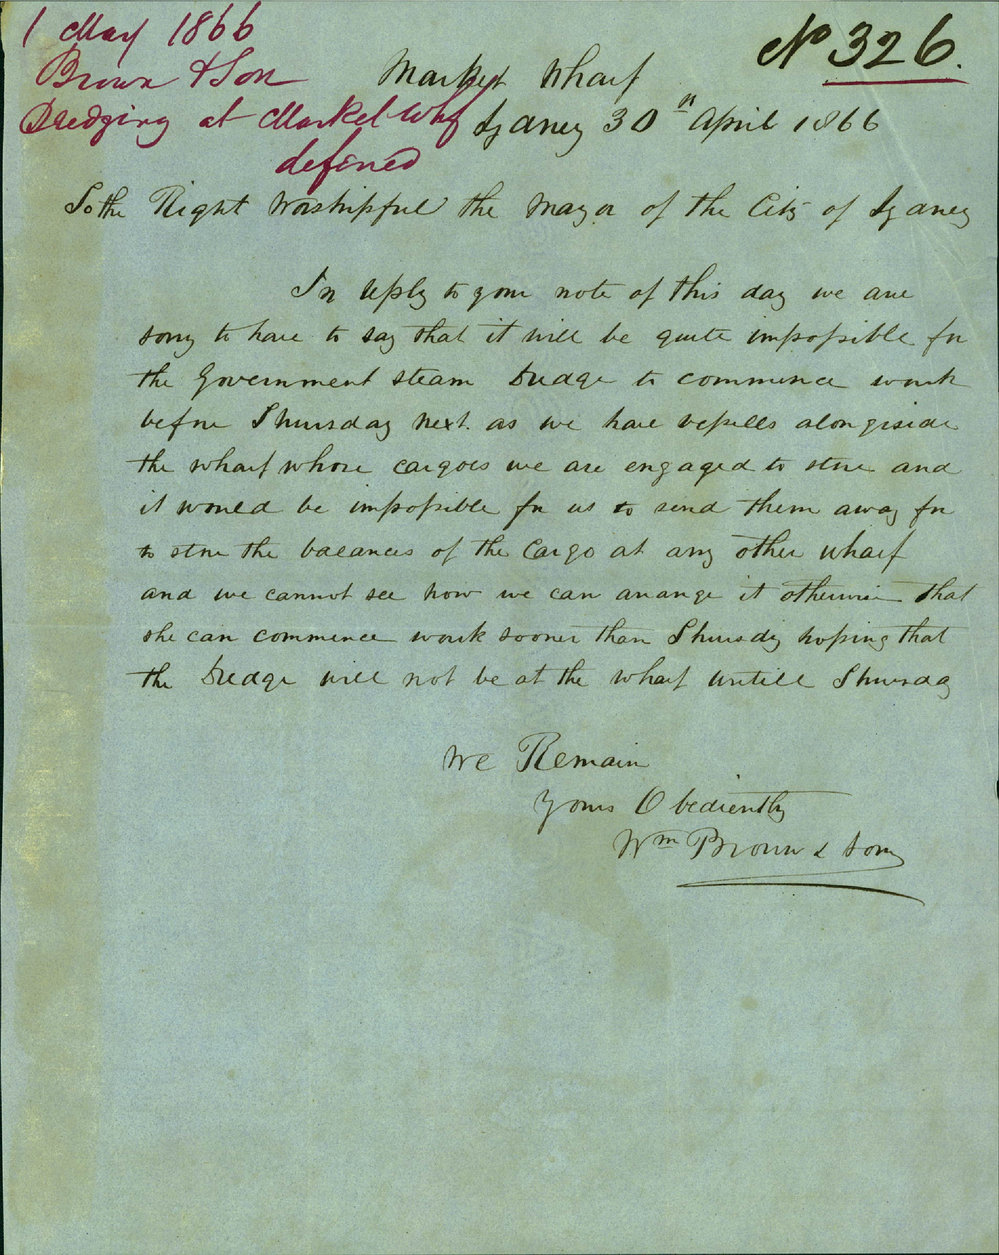 1 May 1866
Brown & Son
Dredging at Market Whf
defined
No 326.
Market Wharf
Sydney 30th April 1866
To the Right Worshipful the Mayor of the City of Sydney
In reply to your note of this day we are
sorry to have to say that it will be quite impossible for
the Government steam Dredge to commence work
before Thursday next. as we have vessells alongside
the wharf whose cargoes we are engaged to store and
it would be impossible for us to send them away for
to store the balances of the Cargo at any other wharf
and we cannot see how we can arrange it otherwise that
she can commence work sooner than Thursdy hoping that
the Dredge will not be at the wharf untill Thursday
We Remain
Yours Obediently
Wm Brown & Son